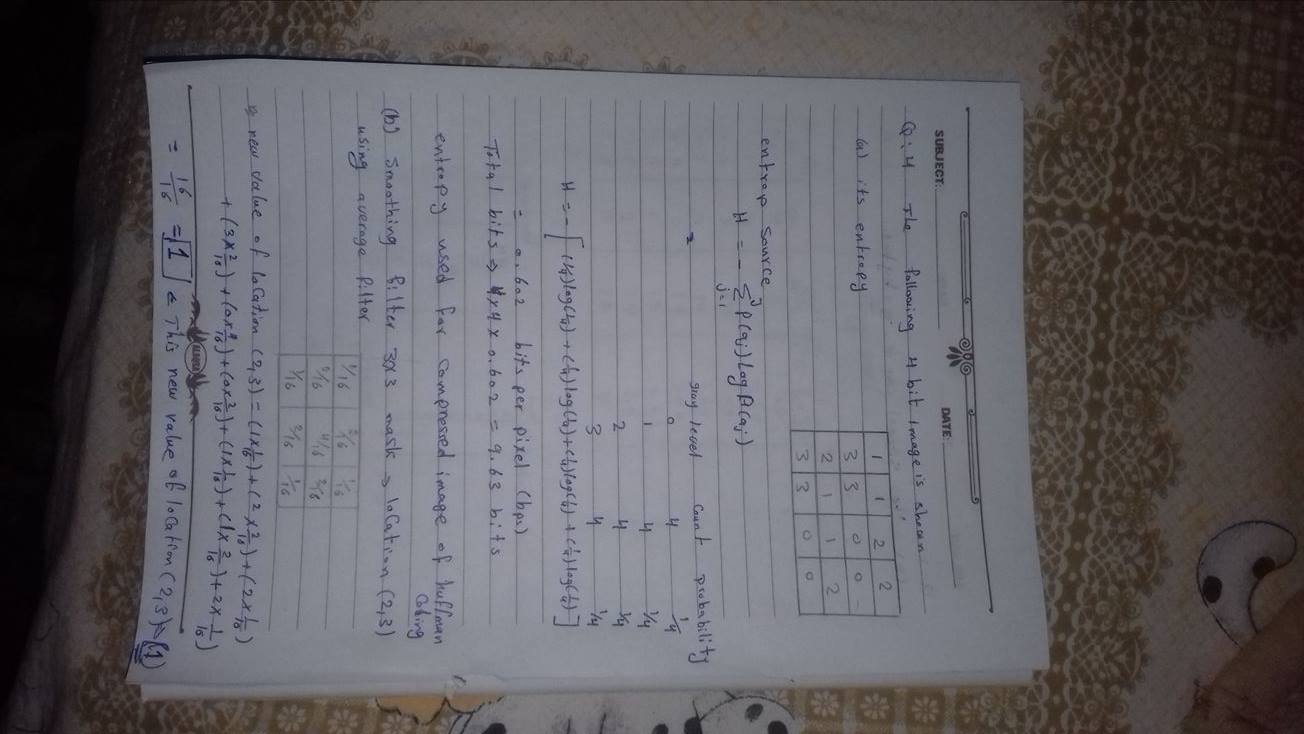 SUBJECT: DATE:
Q:4 The following 4 bit image is shown
(a) its entropy
1 1 2 2
3 3 0 0
2 1 1 2
3 3 0 0
entrop source
H = - Σ P(aj) log P(aj)
j=1
gray level count probability
0 4 1/4
1 4 1/4
2 4 1/4
3 4 1/4
H = - [ (1/4)log(1/4) + (1/4)log(1/4) + (1/4)log(1/4) + (1/4)log(1/4) ]
= 0.602 bits per pixel (bps)
Total bits ⇒ 4x4x0.602 = 9.63 bits
entropy used for compressed image of huffman
coding
(b) smoothing filter 3x3 mask → location (2,3)
using average filter
1/16 2/16 1/16
2/16 4/16 2/16
1/16 2/16 1/16
⇒ new value of location (2,3) = (1x1/16) + (2x2/16) + (2x1/16)
+ (3x2/16) + (0x4/16) + (0x2/16) + (1x1/16) + (1x2/16) + 2x1/16)
= 16/16 = 1 ← This new value of location (2,3) (1)